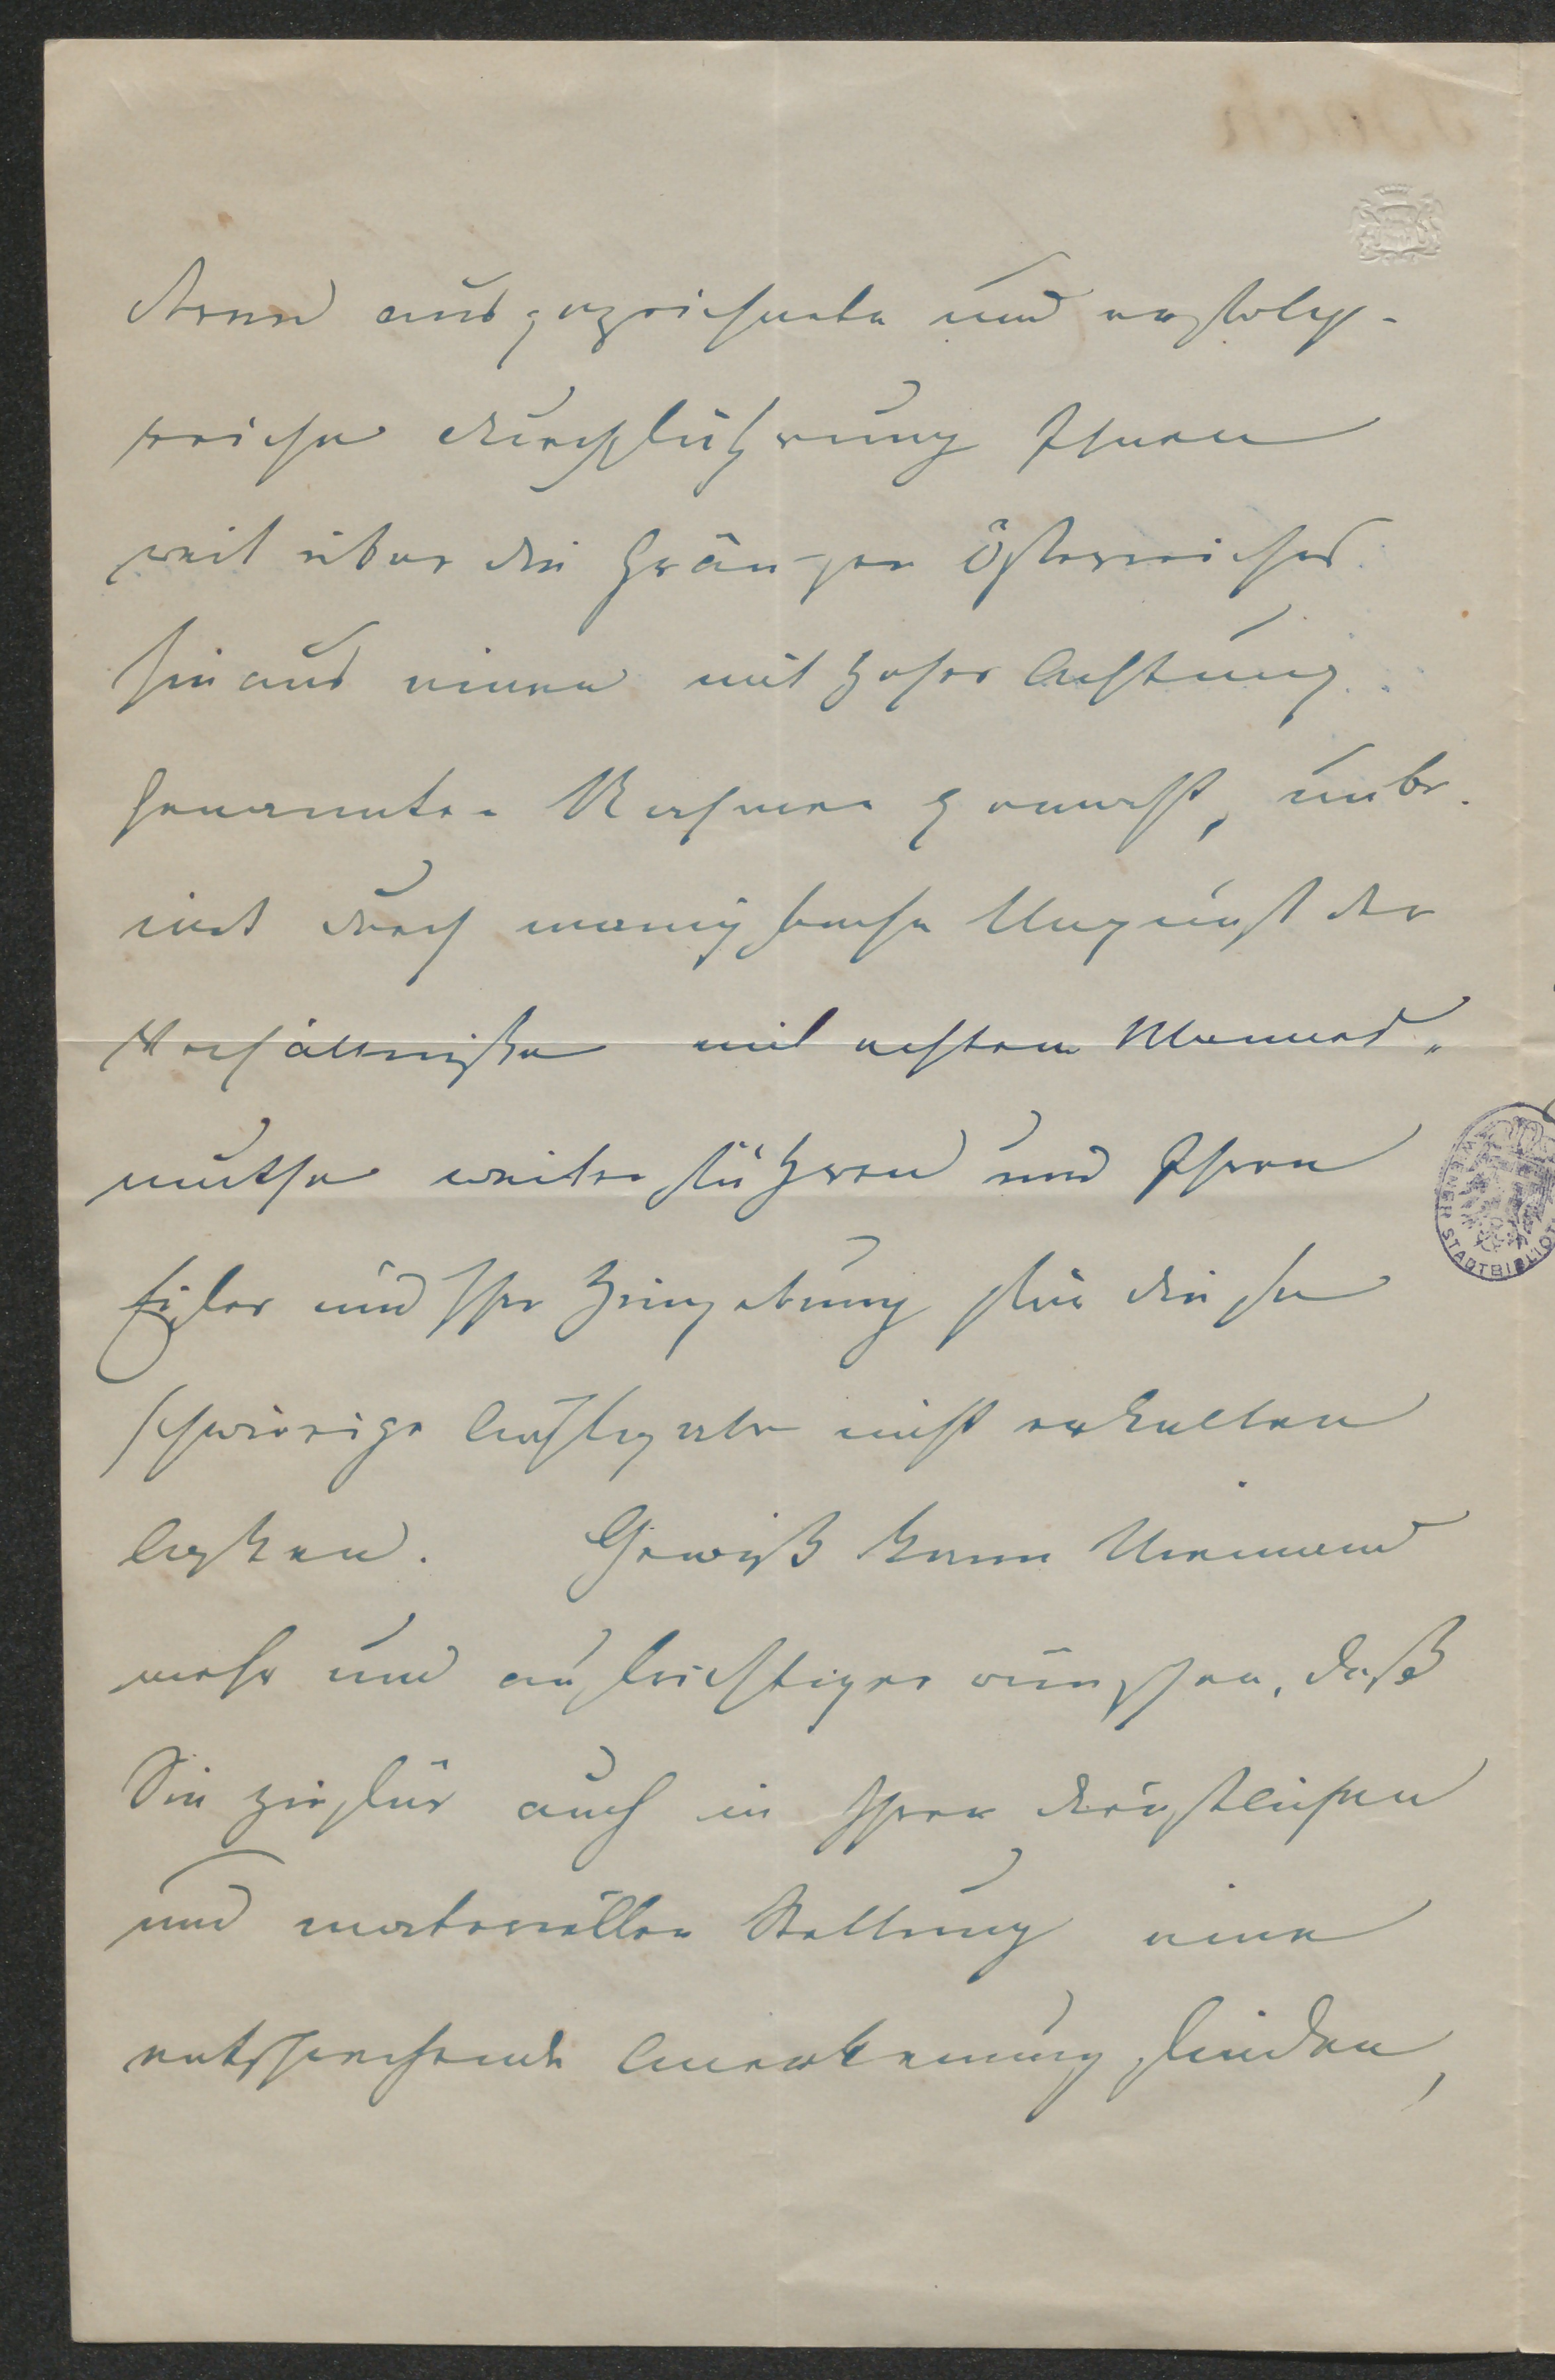 deren ausgezeichnete und erfolg-
reiche Durchführung Ihnen
weit über die Gränzen Österreichs
hinaus einen mit hoher Achtung
genannten Nahmen gemacht, unbe-
irrt durch manigfache Ungunst der
Verhältniße mit echtem Mannes-
muthe weiter führen und Ihren
Eifer und Ihre Hingebung für diese
schwierige Aufgabe nicht erkalten
laßen. Gewiß kann Niemand
mehr und aufrichtiger wünschen, daß
Sie hiefür auch in Ihrer dienstlichen
und materiellen Stellung eine
entsprechende Anerkennung finden,
STADTBIBLIOT